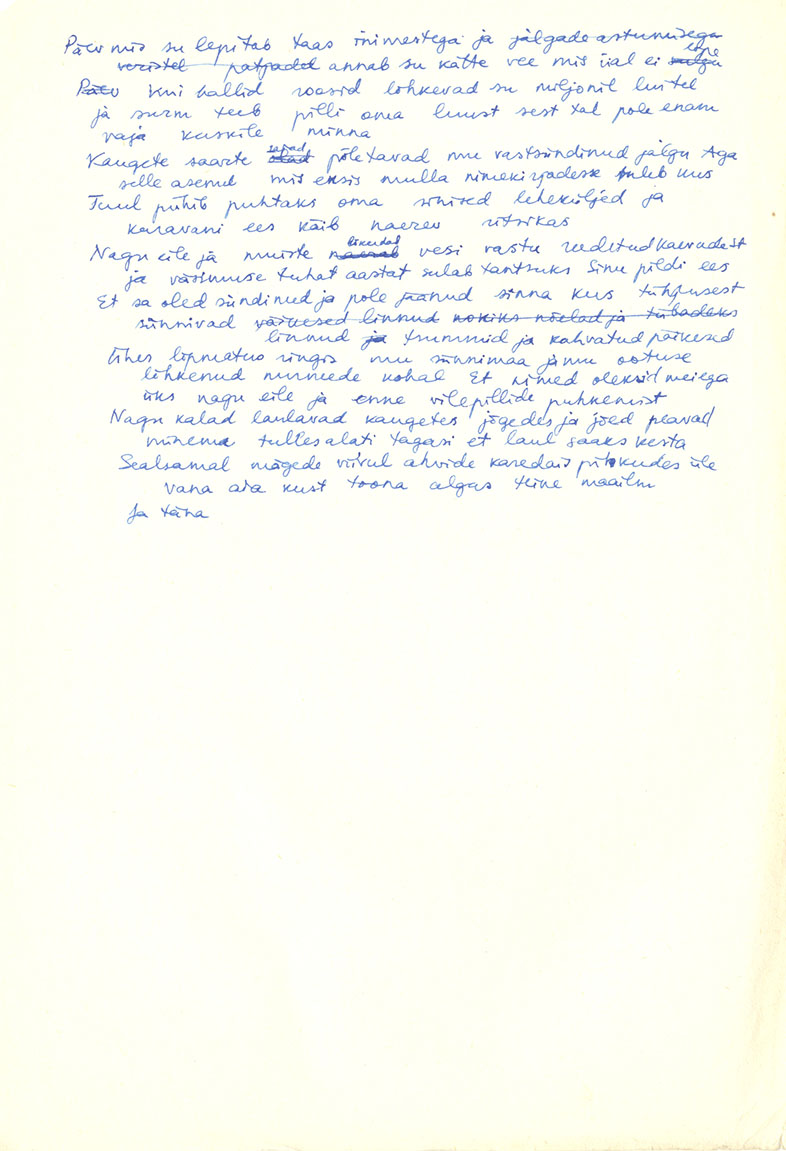 Päev mis su lepitab taas inimestega ja jälgade astumisega
veristel patjadel annab su kätte vee mis iial ei lõpe
Päev kui hallid roosid lõhkevad su miljonil luitel
ja surm teeb pilli oma luust sest tal pole enam
vaja kuskile minna
Kaugete saarte sajad põletavad mu vastsündinud jälgu Aga
selle asemel mis eksis mulla nimekirjadesse tuleb uus
Tuul pühib puhtaks oma sinised leheküljed ja
karavani ees käib naerev ritsikas
Nagu eile ja muiste liikudab vesi vastu reedetud kaevudest
ja väsimuse tuhat aastat sulab tantsuks Sinu pildi ees
Et sa oled sündinud ja pole jäänud sinna kus tühjusest
sünnivad väikesed linnud nokiks nõelad ja tiibadeks
linnud ja trummid ja kahvatud päikesed
Ühes lõpmatus ringis mu sünnimaa ja mu ootuse
lõhkenud nunnede kohal Et nimed oleksid meiega
üks nagu eile ja enne vilepillide puhkemist
Nagu kalad laulavad kaugetes jõgedes ja jõed peavad
minema tulles alati tagasi et laul saaks kesta
Sealsamal mägede viirul ahvide karedais pihkudes üle
vana aia kust toona algas teine maailm
Ja täna